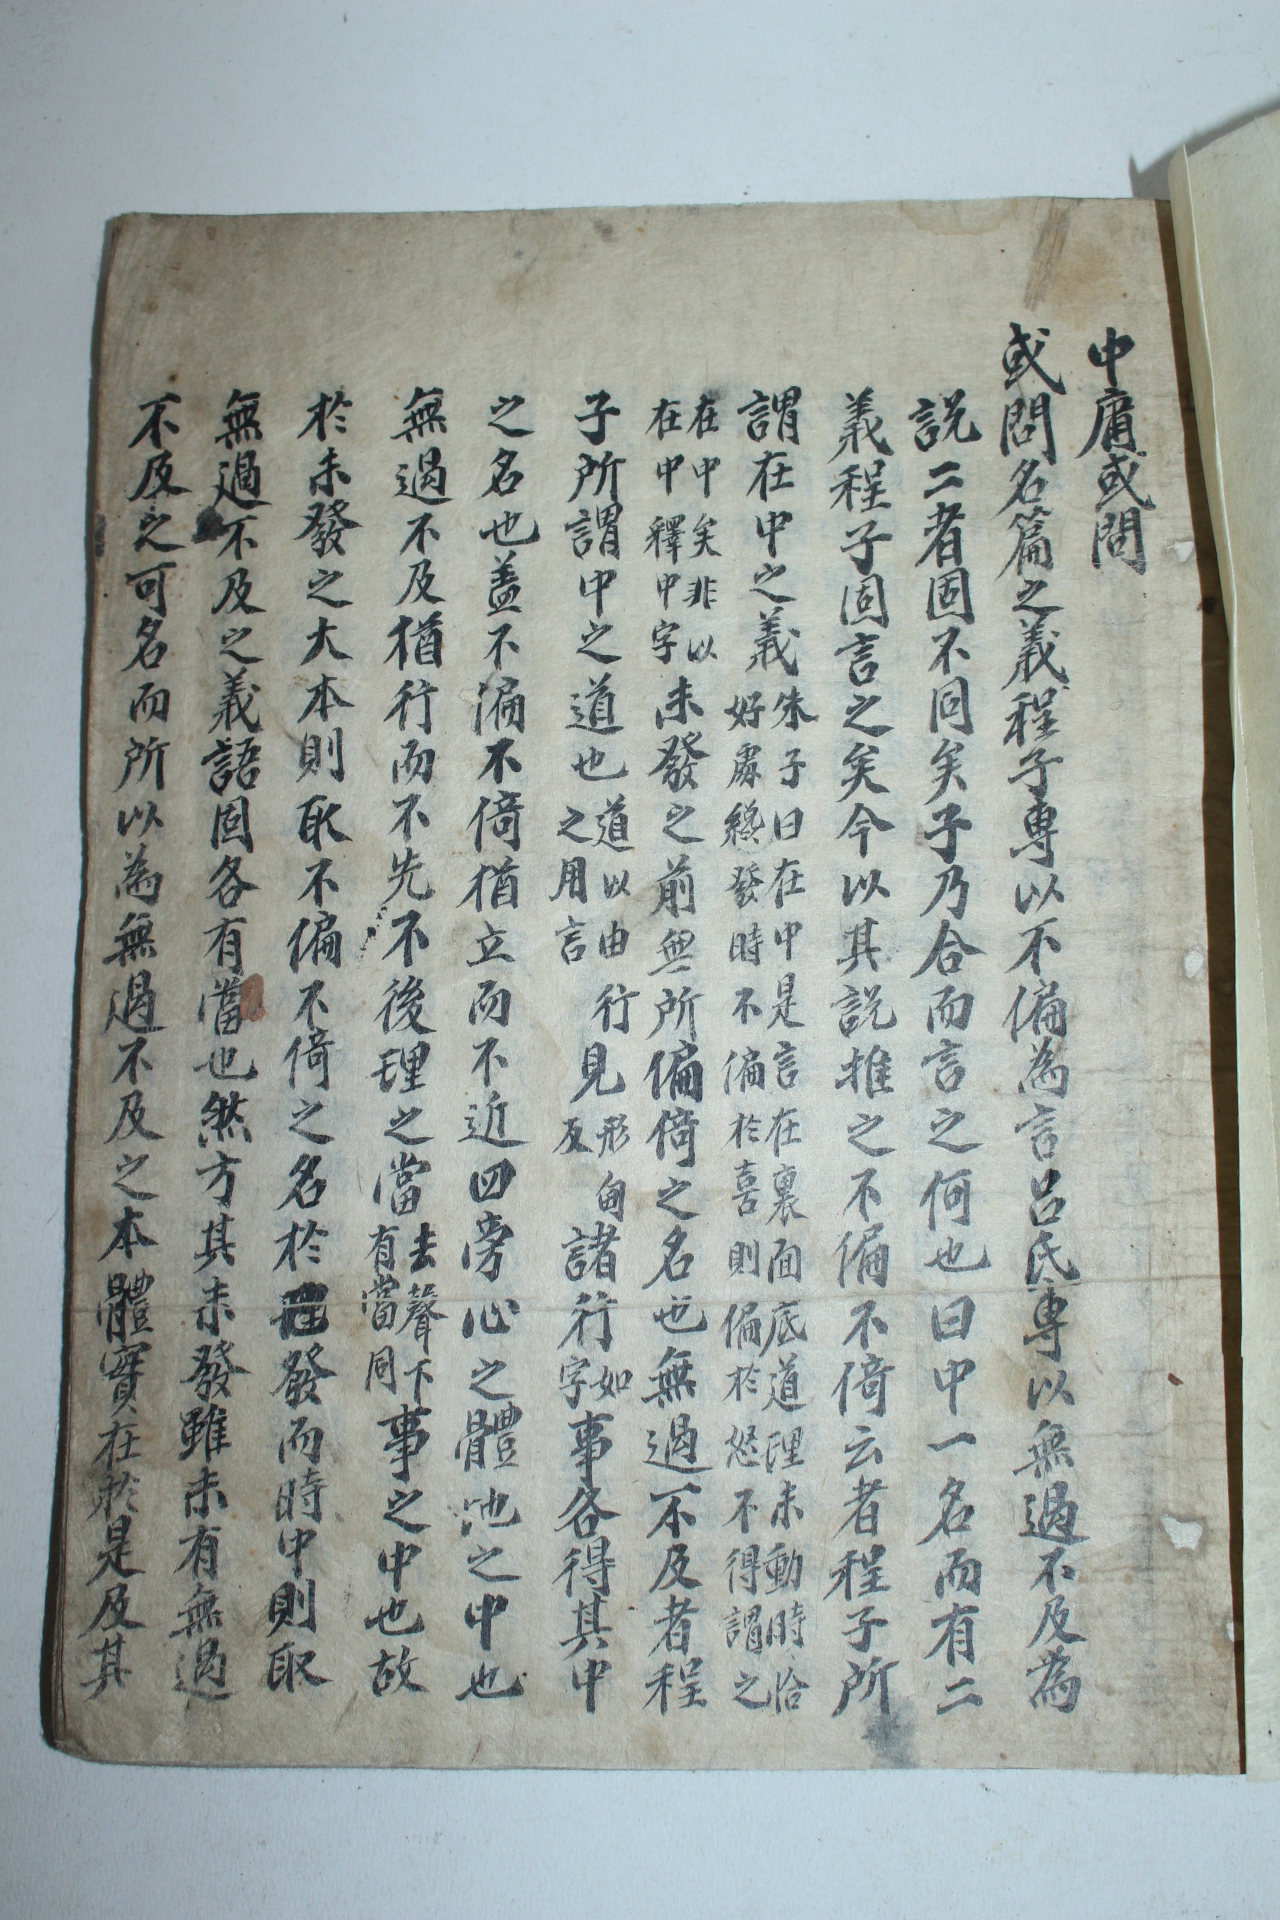 中庸或問
或問名篇之義程子專以不偏為言呂氏專以無過不及為
說二者固不同矣子乃合而言之何也曰中一名而有二
義程子固言之矣今以其說推之不偏不倚云者程子所
謂在中之義朱子曰在中是言在裏面底道理未動時恰好處纔發時不偏於喜則偏於怒不得謂之
在中矣非以在中釋中字未發之前無所偏倚之名也無過不及者程
子所謂中之道也道以由行之用言見形甸反諸行如字事各得其中
之名也盖不偏不倚猶立而不近四旁心之體地之中也
無過不及猶行而不先不後理之當去聲下有當同事之中也故
於未發之大本則取不偏不倚之名於發而時中則取
無過不及之義語固各有當也然方其未發雖未有無過
不及之可名而所以為無過不及之本體實在於是及其